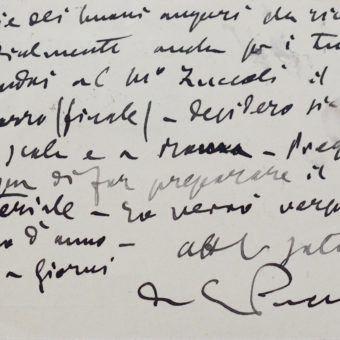 ie dei buoni auguri da ric
ialmente anche per i tu
andai al Mº Zuccoli il
arro (finale) – desidero sia
scala e a Roma – Preg
di far preparare il
teriale – Io verrò verso
o d'anno –
a giorni